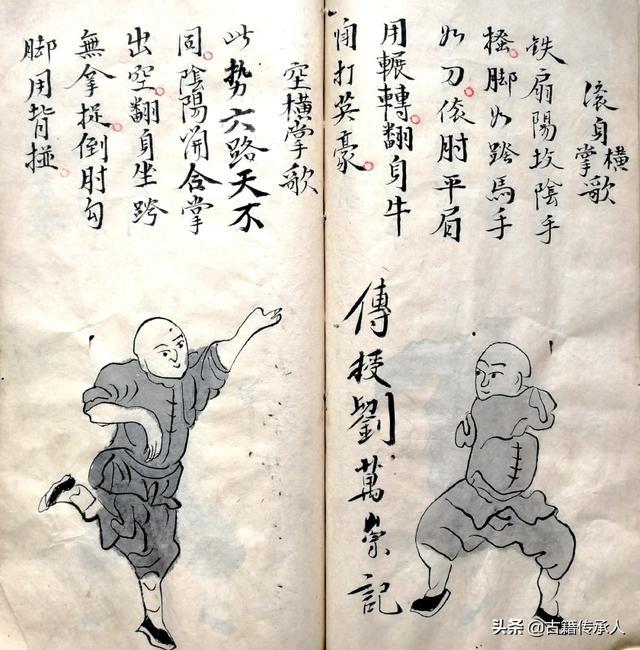 滚身橫掌歌
铁扇陽陰手
脚如跨馬手
如刀滚肘平肩
用輾轉翻身牛
角打英豪
傳授劉萬崇記
空橫掌歌
此勢六路天不
同陰陽開合掌
出空翻身坐跨
無拿捉倒肘勾
脚用背掽
头条 @古籍传承人